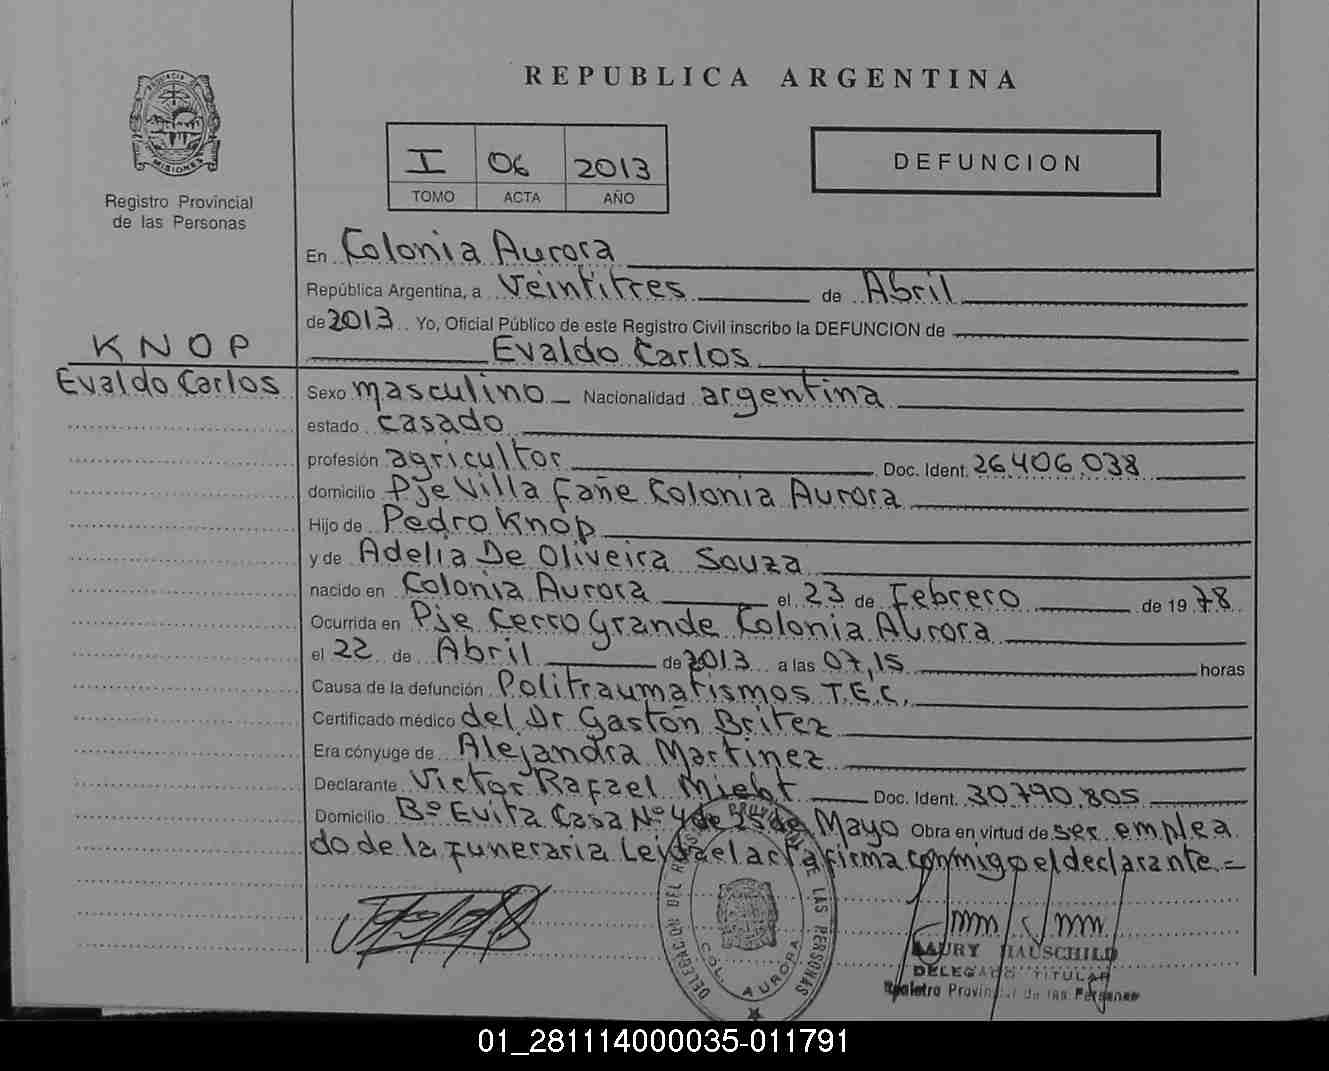 REPUBLICA ARGENTINA
MISIONES
Registro Provincial
de las Personas
I 06 2013
TOMO ACTA AÑO
DEFUNCION
En Colonia Aurora
República Argentina, a Veintitres de Abril
de 2013 Yo, Oficial Público de este Registro Civil inscribo la DEFUNCION de
KNOP
Evaldo Carlos
Evaldo Carlos
Sexo masculino Nacionalidad argentina
estado casado
profesión agricultor Doc. Ident. 26.406.038
domicilio Pje Villa fañe Colonia Aurora
Hijo de Pedro Knop
y de Adelia De Oliveira Souza
nacido en Colonia Aurora el 23 de Febrero de 1978
Ocurrida en Pje Cerro Grande Colonia Aurora
el 22 de Abril de 2013 a las 07,15 horas
Causa de la defunción Politraumatismos T.E.C.
Certificado médico del Dr Gastón Britez
Era cónyuge de Alejandra Martinez
Declarante Victor Rafael Mieht Doc. Ident. 30.790.805
Domicilio Bº Evita Casa Nº 4 de 25 de Mayo Obra en virtud de ser emplea
do de la funeraria Leida el acta firma conmigo el declarante.=
DELEGACION DEL REGISTRO PROVINCIAL DE LAS PERSONAS
COL. AURORA
LAURY HAUSCHILD
DELEGADO TITULAR
Registro Provincial de las Personas
01_281114000035-011791